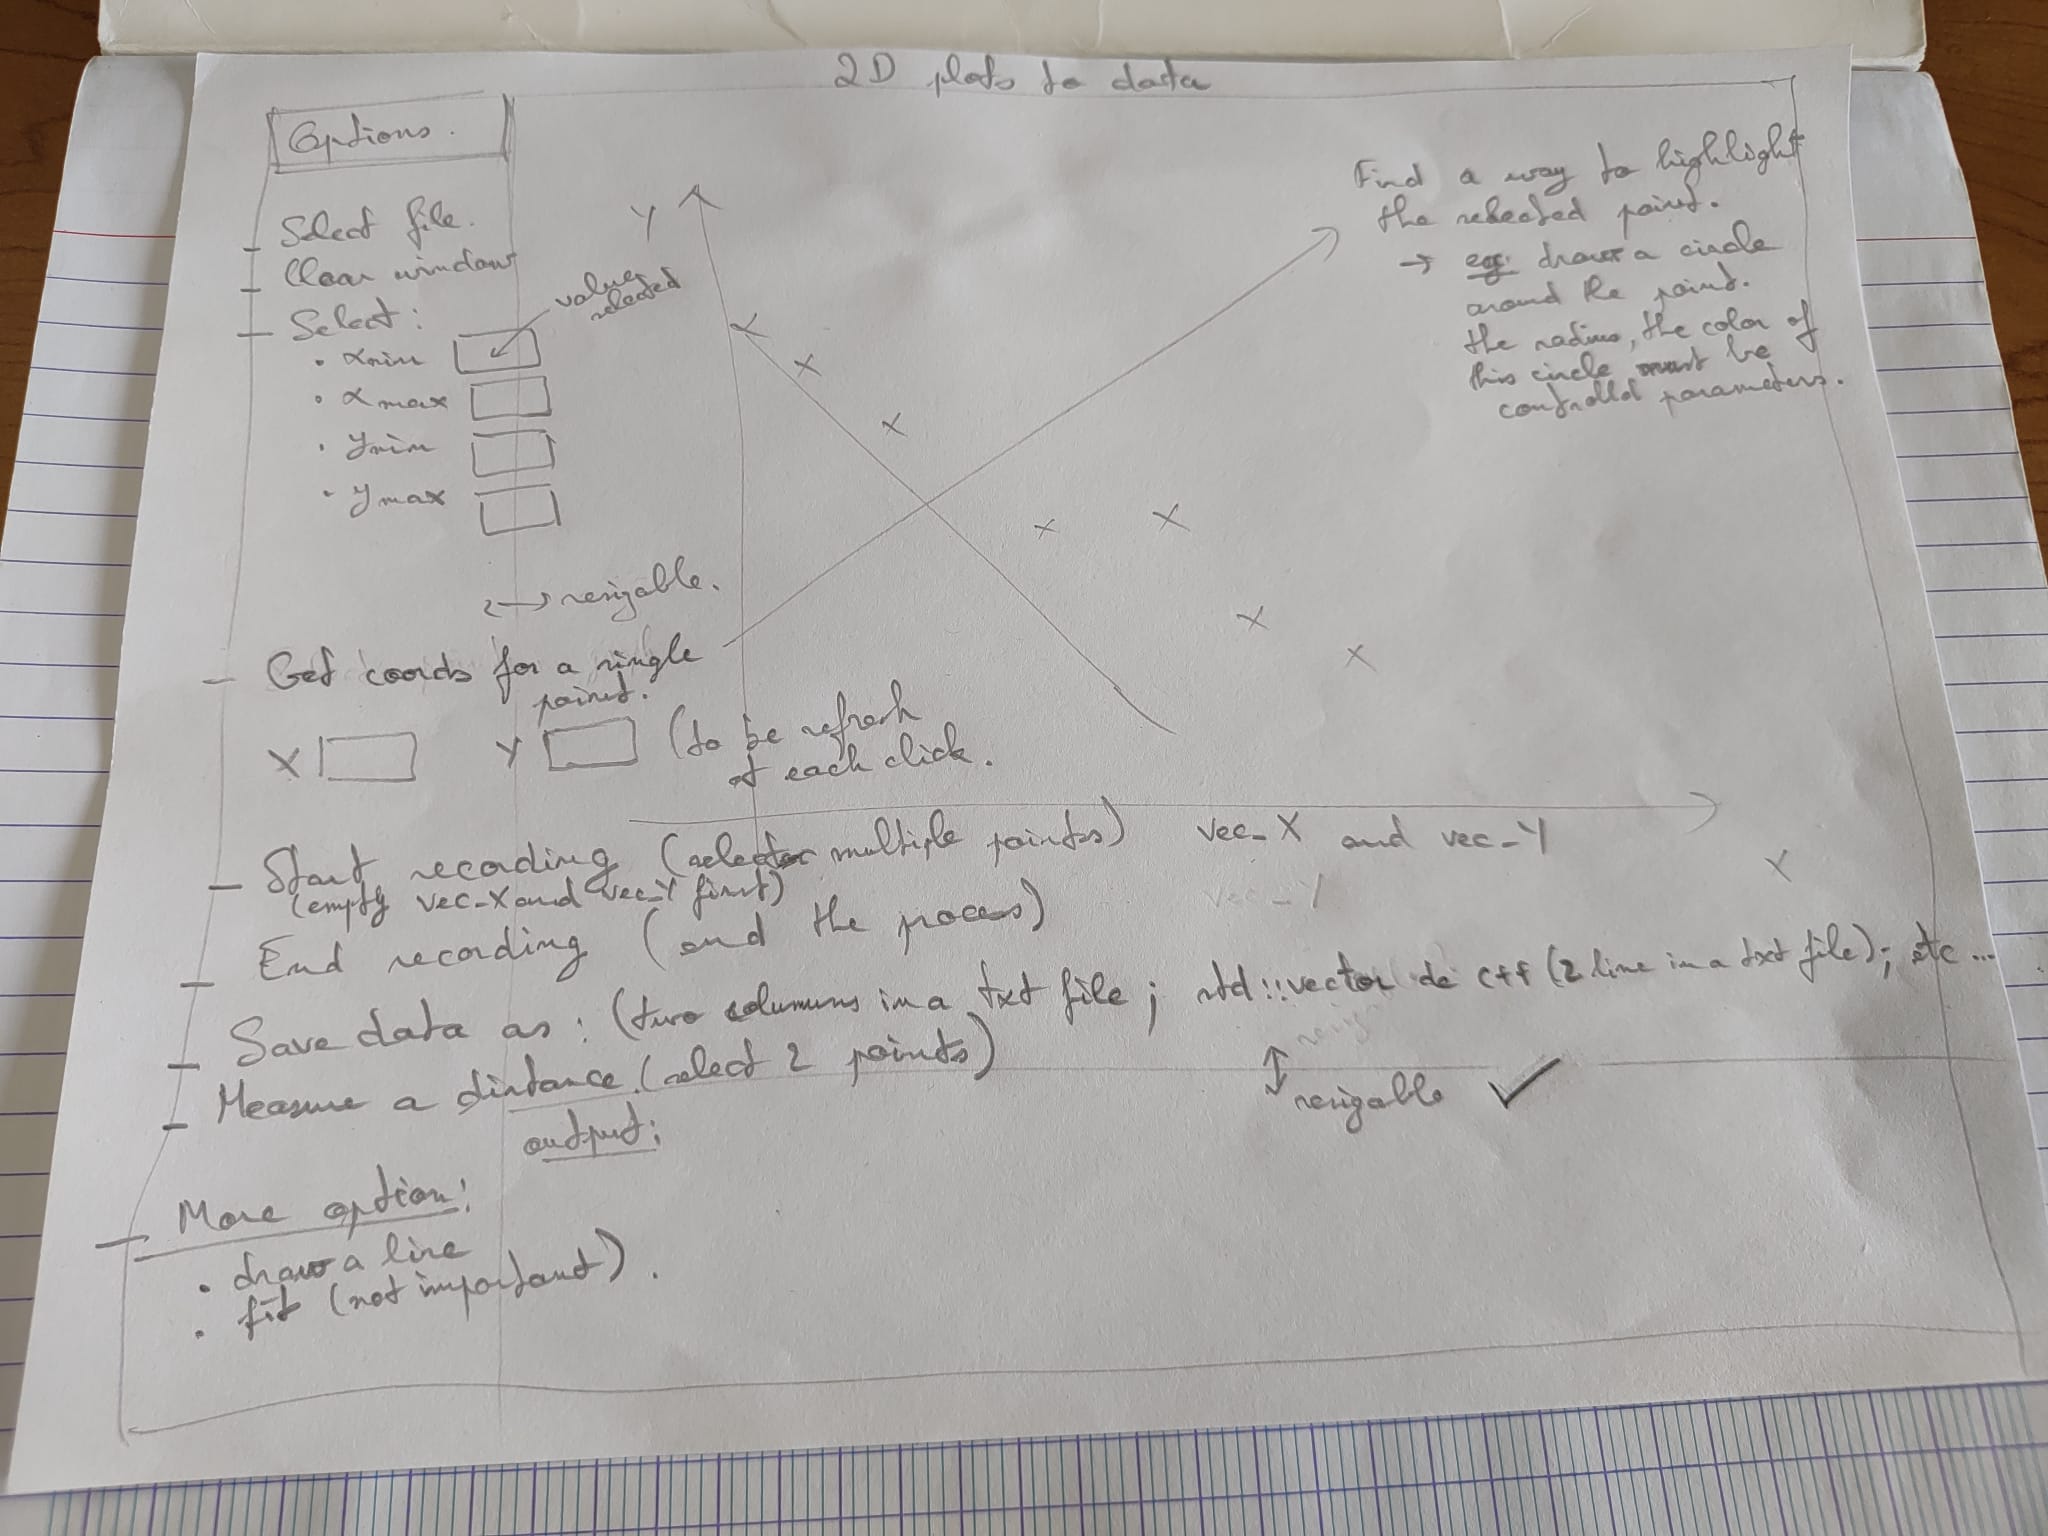 2D plots to data
Options.
- Select file.
- Clear window
- Select:
value selected
• xmin
• xmax
• ymin
• ymax
Y
Find a way to highlight
the selected point.
→ eg: draw a circle
around the point.
the radius, the color of
this circle must be
controlled parameters.
↔ resizable.
- Get coords for a single
point.
X Y (to be refresh
at each click.
X
- Start recording (select multiple points) vec_X and vec_Y
(empty vec_X and vec_Y first)
vec_Y
- End recording (end the process)
- Save data as: (two columns in a txt file; std::vector de c++ (2 line in a txt file); etc...
- Measure a distance. (select 2 points)
↕ resizable ✓
output:
- More option:
• draw a line
• fit (not important).